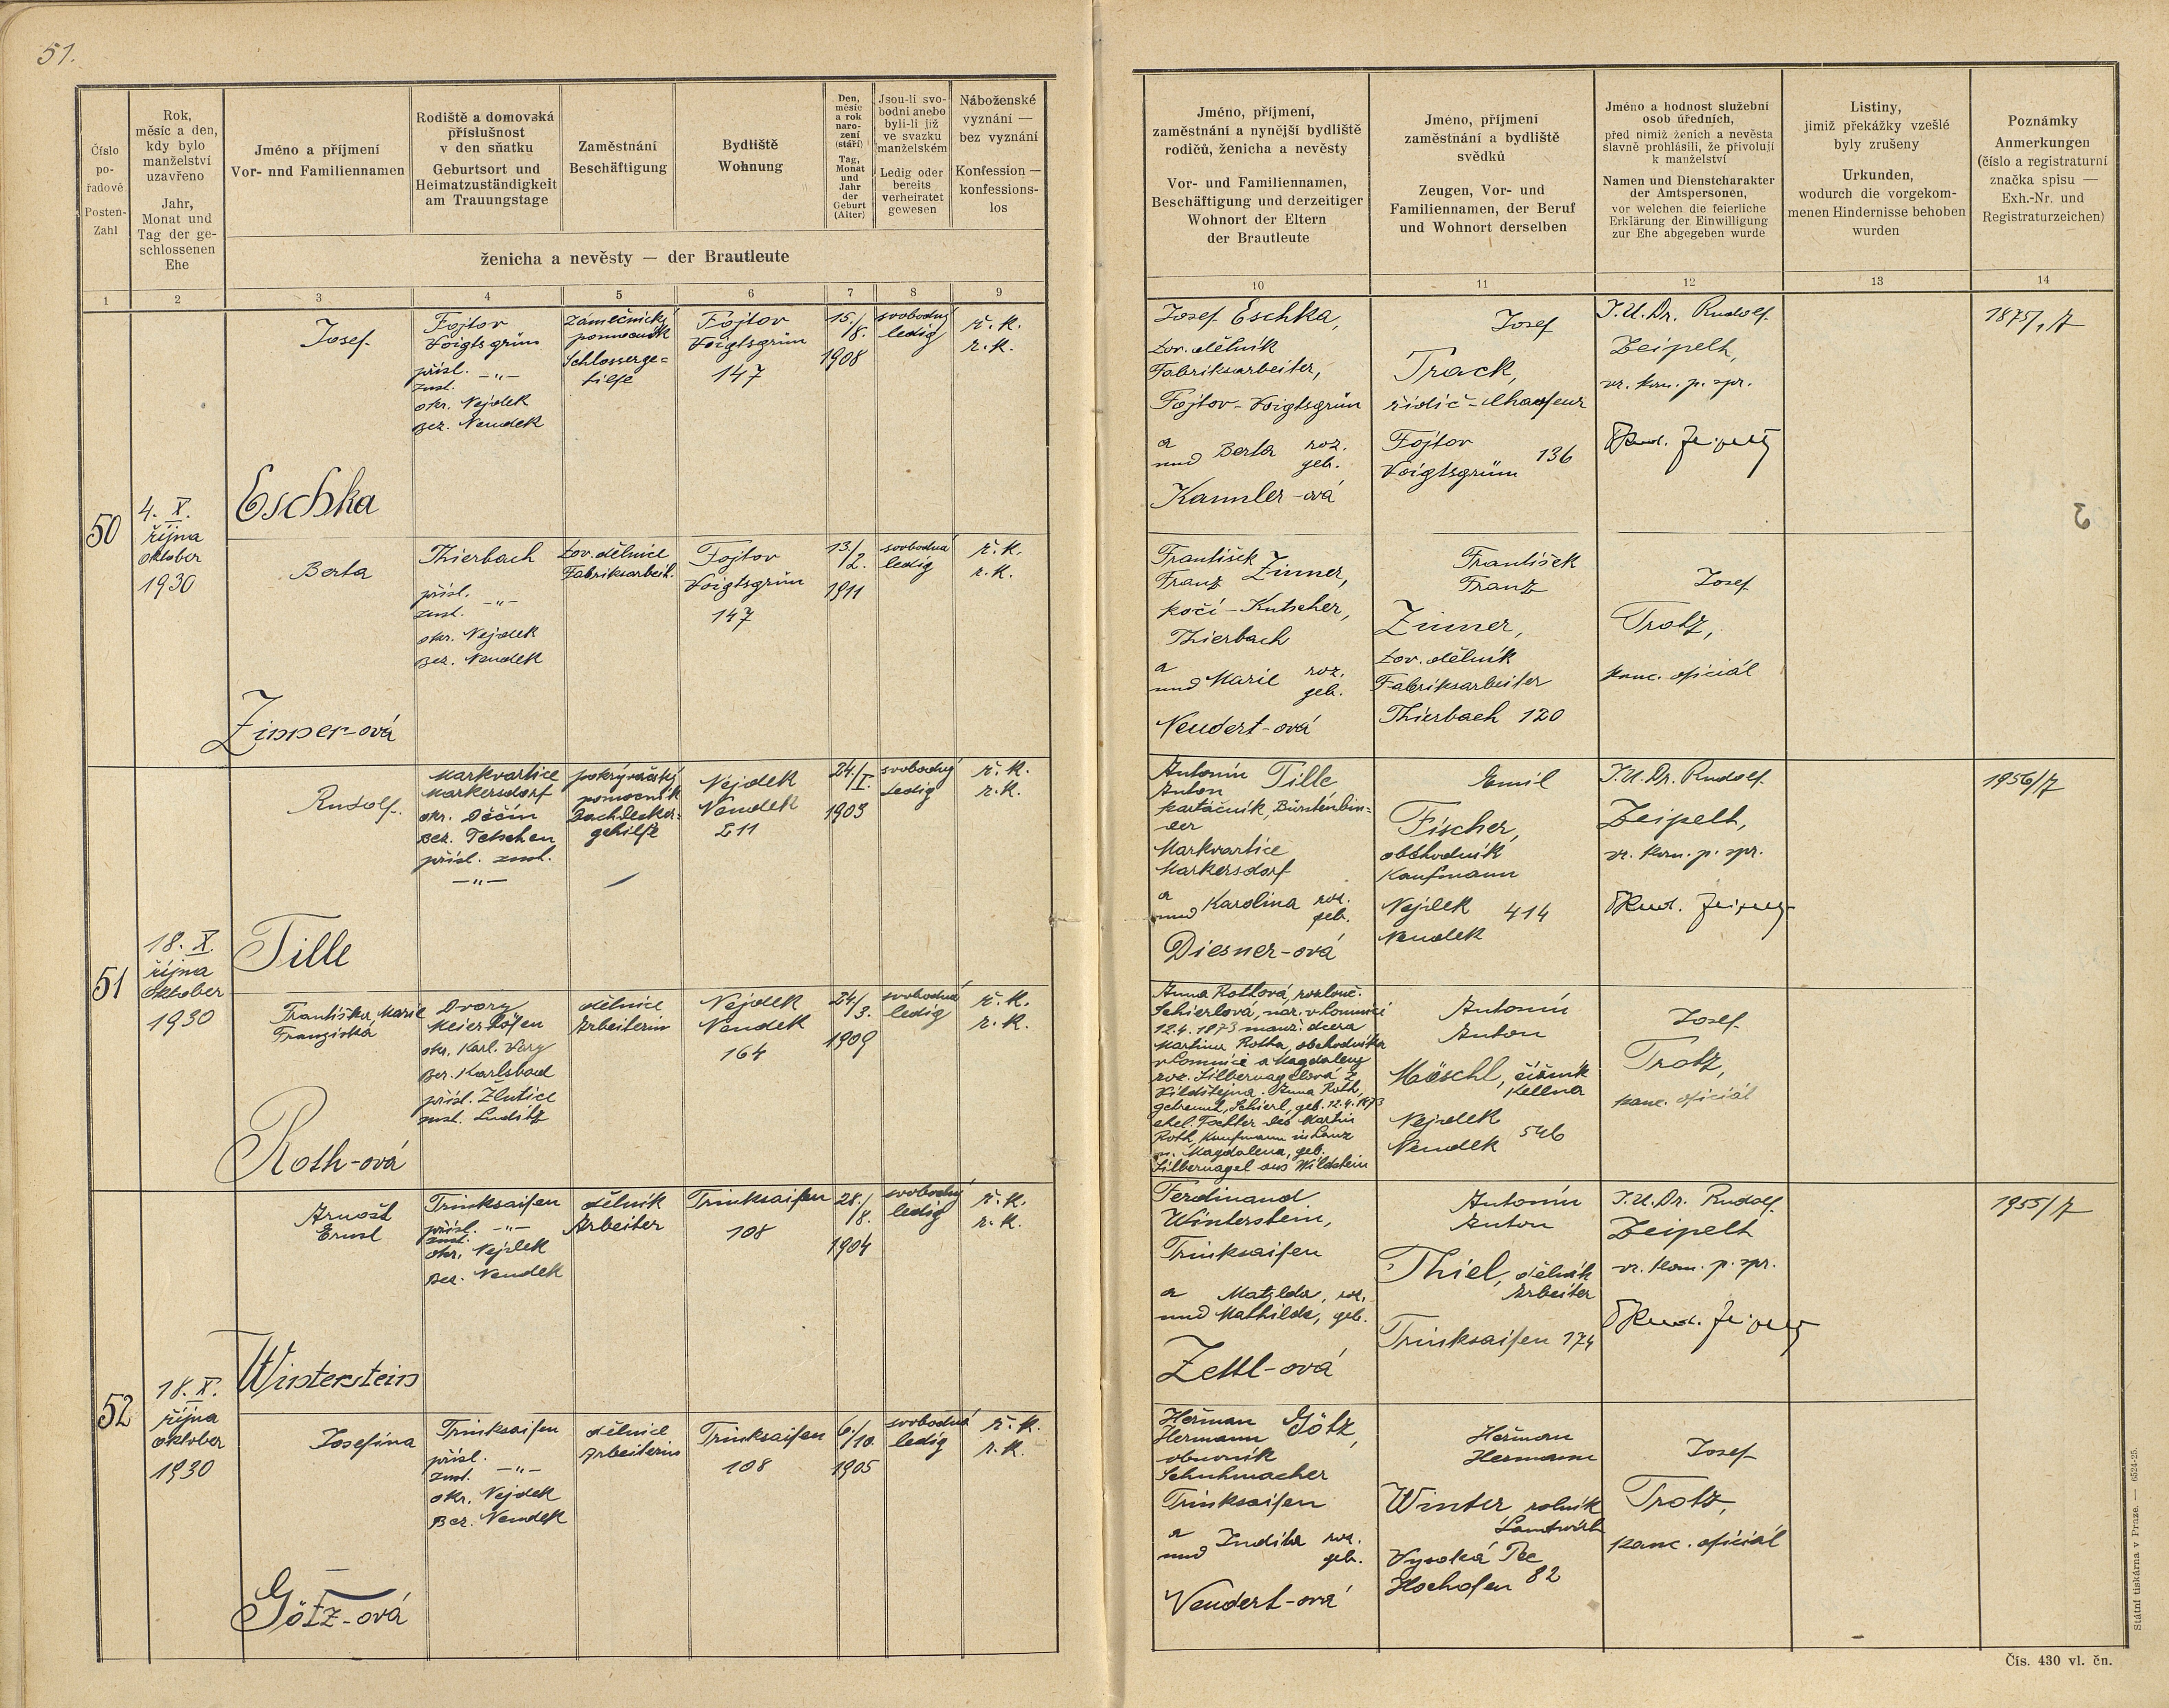 51.
Číslo
po-
řadové
Posten-
Zahl
Rok,
měsíc a den,
kdy bylo
manželství
uzavřeno
Jahr,
Monat und
Tag der ge-
schlossenen
Ehe
Jméno a příjmení
Vor- nnd Familiennamen
Rodiště a domovská
příslušnost
v den sňatku
Geburtsort und
Heimatzuständigkeit
am Trauungstage
Zaměstnání
Beschäftigung
Bydliště
Wohnung
Den,
měsíc
a rok
naro-
zení
(stáří)
Tag,
Monat
und
Jahr
der
Geburt
(Alter)
Jsou-li svo-
bodni anebo
byli-li již
ve svazku
manželském
Ledig oder
bereits
verheiratet
gewesen
Náboženské
vyznání —
bez vyznání
Konfession —
konfessions-
los
ženicha a nevěsty — der Brautleute
1 2 3 4 5 6 7 8 9
50
4. X.
října
oktober
1930
Josef
Eschka
Fojtov
Voigtsgrün
přísl.
zust. -"-
okr. Nejdek
Bez. Neudek
zámečnický
pomocník
Schlosserge=
hilfe
Fojtov
Voigtsgrün
147
15./
/8.
1908
svobodný
ledig
ř. k.
r. k.
Berta
Zinner-ová
Thierbach
přísl.
zust. -"-
okr. Nejdek
Bez. Neudek
tov. dělnice
Fabriksarbeit.
Fojtov
Voigtsgrün
147
13./
/2.
1911
svobodná
ledig
ř. k.
r. k.
51
18. X.
října
Oktober
1930
Rudolf
Tille
Markvartice
Markersdorf
okr. Děčín
Bez. Tetschen
přísl. zust.
-"-
pokrývačský
pomocník
Dachdecker=
gehilfe
Nejdek
Neudek
211
24./
/I.
1903
svobodný
ledig
ř. k.
r. k.
Františka Marie
Franziska
Roth-ová
Dvory
Meierhöfen
okr. Karl. Vary
Bez. Karlsbad
přísl. Žlutice
zust. Luditz
dělnice
Arbeiterin
Nejdek
Neudek
164
24./
/3.
1909
svobodná
ledig
ř. k.
r. k.
52
18. X.
října
oktober
1930
Arnošt
Ernst
Winterstein
Trinksaifen
přísl. -"-
zust.
okr. Nejdek
Bez. Neudek
dělník
Arbeiter
Trinksaifen
108
28./
/8.
1904
svobodný
ledig
ř. k.
r. k.
Josefina
Götz-ová
Trinksaifen
přísl.
zust. -"-
okr. Nejdek
Bez. Neudek
dělnice
Arbeiterin
Trinksaifen
108
6./
/10.
1905
svobodná
ledig
ř. k.
r. k.
Jméno, příjmení,
zaměstnání a nynější bydliště
rodičů, ženicha a nevěsty
Vor- und Familiennamen,
Beschäftigung und derzeitiger
Wohnort der Eltern
der Brautleute
Jméno, příjmení
zaměstnání a bydliště
svědků
Zeugen, Vor- und
Familiennamen, der Beruf
und Wohnort derselben
Jméno a hodnost služební
osob úředních,
před nimiž ženich a nevěsta
slavně prohlásili, že přivolují
k manželství
Namen und Dienstcharakter
der Amtspersonen,
vor welchen die feierliche
Erklärung der Einwilligung
zur Ehe abgegeben wurde
Listiny,
jimiž překážky vzešlé
byly zrušeny
Urkunden,
wodurch die vorgekom-
menen Hindernisse behoben
wurden
Poznámky
Anmerkungen
(číslo a registraturní
značka spisu —
Exh.-Nr. und
Registraturzeichen)
10 11 12 13 14
Josef Eschka,
tov. dělník
Fabriksarbeiter,
Fojtov-Voigtsgrün
a
und Berta roz.
geb.
Kannler-ová
Josef
Track,
řidič-Chaufeur
Fojtov
Voigtsgrün 136
J.U.Dr. Rudolf
Zeipelt,
vr. kom. p. spr.
1875/7
František
Franz Zinner,
kočí-Kutscher,
Thierbach
a
und Marie roz.
geb.
Neudert-ová
František
Franz
Zinner,
tov. dělník
Fabriksarbeiter
Thierbach 120
Josef
Trotz,
kanc. oficiál
Antonín
Anton Tille
kartáčník, Bürstenbin=
der
Markvartice
Markersdorf
a
und Karolina roz.
geb.
Diesner-ová
Emil
Fischer,
obchodník
Kaufmann
Nejdek 414
Neudek
J.U.Dr. Rudolf
Zeipelt,
vr. kom. p. spr.
1956/7
Anna Rothová, rozlouč.
Schierlová, nar. v Lomnici
12.4.1873 manž. dcera
Martina Rotha, obchodníka
v Lomnici a Magdaleny
roz. Silbernagelová z
Vildštejna. Anna Roth,
getrennt, Schierl, geb. 12.4.1873
ehel. Tochter des Martin
Roth, Kaufmann in Lanz
u. Magdalena, geb.
Silbernagel aus Wildstein
Antonín
Anton
Möschl, číšník
Kellner
Nejdek
Neudek 546
Josef
Trotz,
kanc. oficiál
Ferdinand
Winterstein,
Trinksaifen
a Matylda, roz.
und Mathilde, geb.
Zettl-ová
Antonín
Anton
Thiel, dělník
Arbeiter
Trinksaifen 174
J.U.Dr. Rudolf
Zeipelt
vr. kom. p. spr.
1955/7
Heřman
Hermann Götz,
obuvník
Schuhmacher
Trinksaifen
a
und Judita roz.
geb.
Neudert-ová
Heřman
Hermann
Winter rolník
Landwirth
Vysoká Pec
Hochofen 82
Josef
Trotz,
kanc. oficiál
Státní tiskárna v Praze. — 6524-25.
Čís. 430 vl. čn.